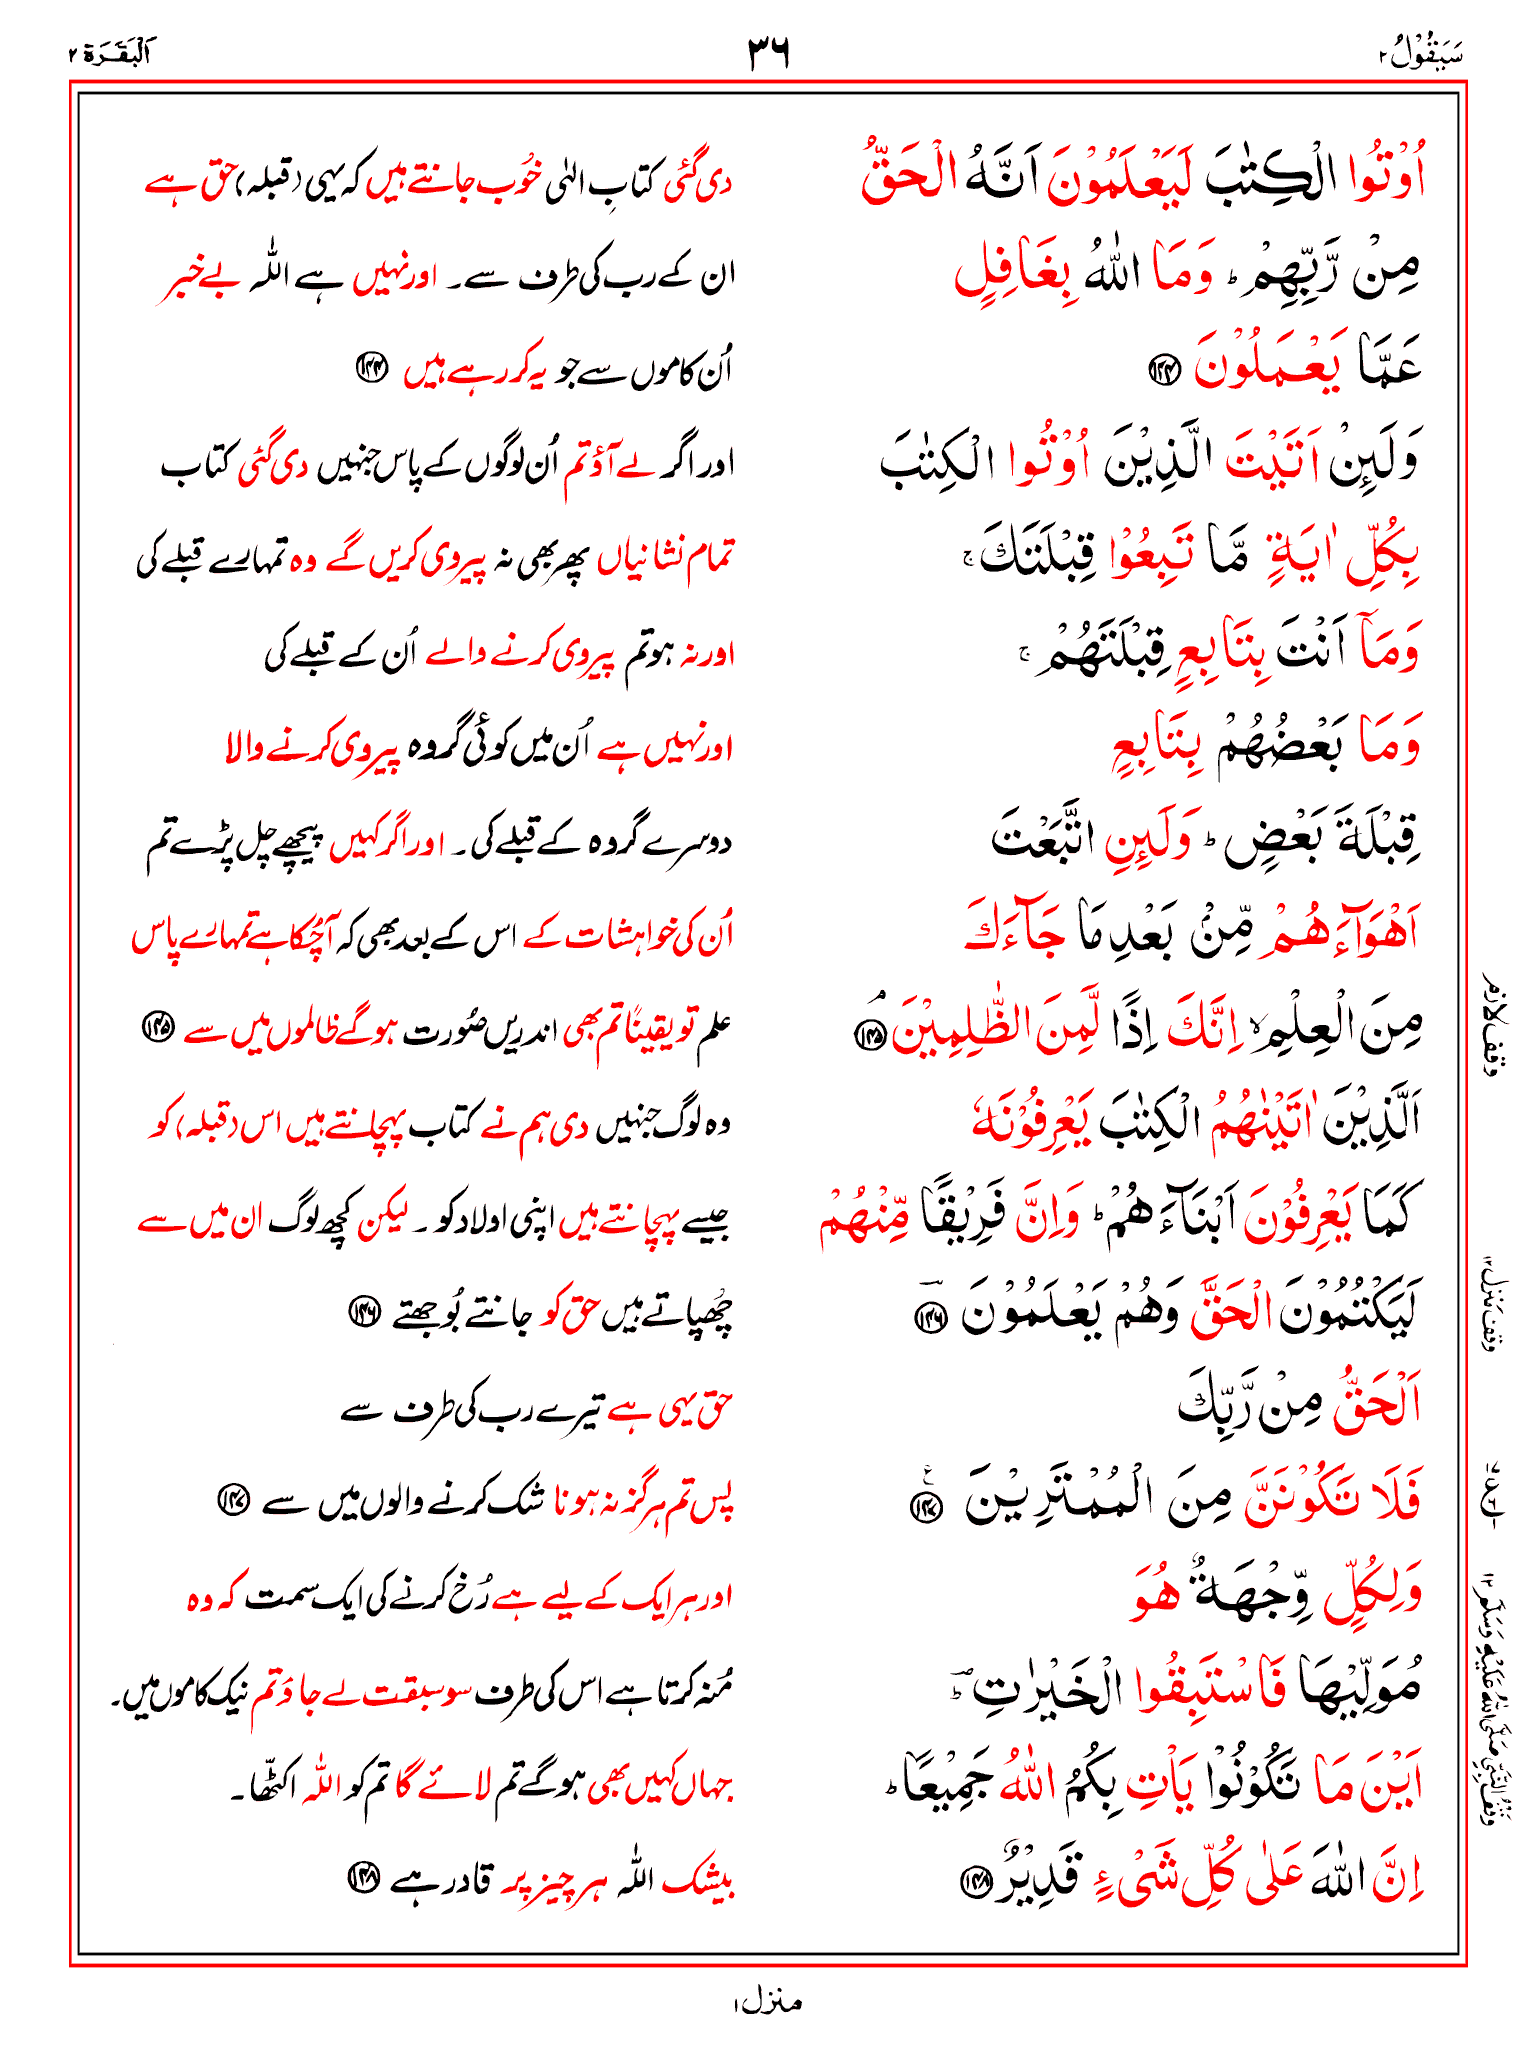 سَيَقُوْلُ ٢
٣٦
اَلْبَقَرَة ٢
اُوْتُوا الْكِتٰبَ لَيَعْلَمُوْنَ اَنَّهُ الْحَقُّ
دی گئی کتابِ الٰہی خُوب جانتے ہیں کہ یہی (قبلہ) حق ہے
مِنْ رَّبِّهِمْ ؕ وَمَا اللّٰهُ بِغَافِلٍ
ان کے رب کی طرف سے۔ اور نہیں ہے اللہ بے خبر
عَمَّا يَعْمَلُوْنَ ۝١٤٤
اُن کاموں سے جو یہ کر رہے ہیں ۝١٤٤
وَلَىِٕنْ اَتَيْتَ الَّذِيْنَ اُوْتُوا الْكِتٰبَ
اور اگر لے آؤ تم اُن لوگوں کے پاس جنہیں دی گئی کتاب
بِكُلِّ اٰيَةٍ مَّا تَبِعُوْا قِبْلَتَكَ ۚ
تمام نشانیاں پھر بھی نہ پیروی کریں گے وہ تمہارے قبلے کی
وَمَاۤ اَنْتَ بِتَابِعٍ قِبْلَتَهُمْ ۚ
اور نہ ہو تم پیروی کرنے والے اُن کے قبلے کی
وَمَا بَعْضُهُمْ بِتَابِعٍ
اور نہیں ہے اُن میں کوئی گروہ پیروی کرنے والا
قِبْلَةَ بَعْضٍ ؕ وَلَىِٕنِ اتَّبَعْتَ
دوسرے گروہ کے قبلے کی۔ اور اگر کہیں پیچھے چل پڑے تم
اَهْوَآءَهُمْ مِّنْۢ بَعْدِ مَا جَآءَكَ
اُن کی خواہشات کے اس کے بعد بھی کہ آچُکا ہے تمہارے پاس
مِنَ الْعِلْمِ ۙ اِنَّكَ اِذًا لَّمِنَ الظّٰلِمِيْنَ ۘ ۝١٤٥
علم تو یقیناً تم بھی اندریں صُورت ہو گے ظالموں میں سے ۝١٤٥
وقف لازم
اَلَّذِيْنَ اٰتَيْنٰهُمُ الْكِتٰبَ يَعْرِفُوْنَهٗ
وہ لوگ جنہیں دی ہم نے کتاب پہچانتے ہیں اس (قبلہ) کو
كَمَا يَعْرِفُوْنَ اَبْنَآءَهُمْ ؕ وَاِنَّ فَرِيْقًا مِّنْهُمْ
جیسے پہچانتے ہیں اپنی اولاد کو۔ لیکن کچھ لوگ ان میں سے
لَيَكْتُمُوْنَ الْحَقَّ وَهُمْ يَعْلَمُوْنَ ۝١٤٦
چُھپاتے ہیں حق کو جانتے بُوجھتے ۝١٤٦
وقف منزل ١٢
اَلْحَقُّ مِنْ رَّبِّكَ
حق یہی ہے تیرے رب کی طرف سے
فَلَا تَكُوْنَنَّ مِنَ الْمُمْتَرِيْنَ ۝١٤٧
پس تم ہرگز نہ ہونا شک کرنے والوں میں سے ۝١٤٧
وَلِكُلٍّ وِّجْهَةٌ هُوَ
اور ہر ایک کے لیے ہے رُخ کرنے کی ایک سمت کہ وہ
مُوَلِّيْهَا فَاسْتَبِقُوا الْخَيْرٰتِ ؕؔ
مُنہ کرتا ہے اس کی طرف سو سبقت لے جاؤ تم نیک کاموں میں۔
وقف النَّبِیِّ صَلَّی اللّٰهُ عَلَيْهِ وَسَلَّمَ ١٢
اَيْنَ مَا تَكُوْنُوْا يَاْتِ بِكُمُ اللّٰهُ جَمِيْعًا ؕ
جہاں کہیں بھی ہو گے تم لائے گا تم کو اللہ اکٹھا۔
اِنَّ اللّٰهَ عَلٰى كُلِّ شَىْءٍ قَدِيْرٌ ۝١٤٨
بیشک اللہ ہر چیز پر قادر ہے ۝١٤٨
منزل ١